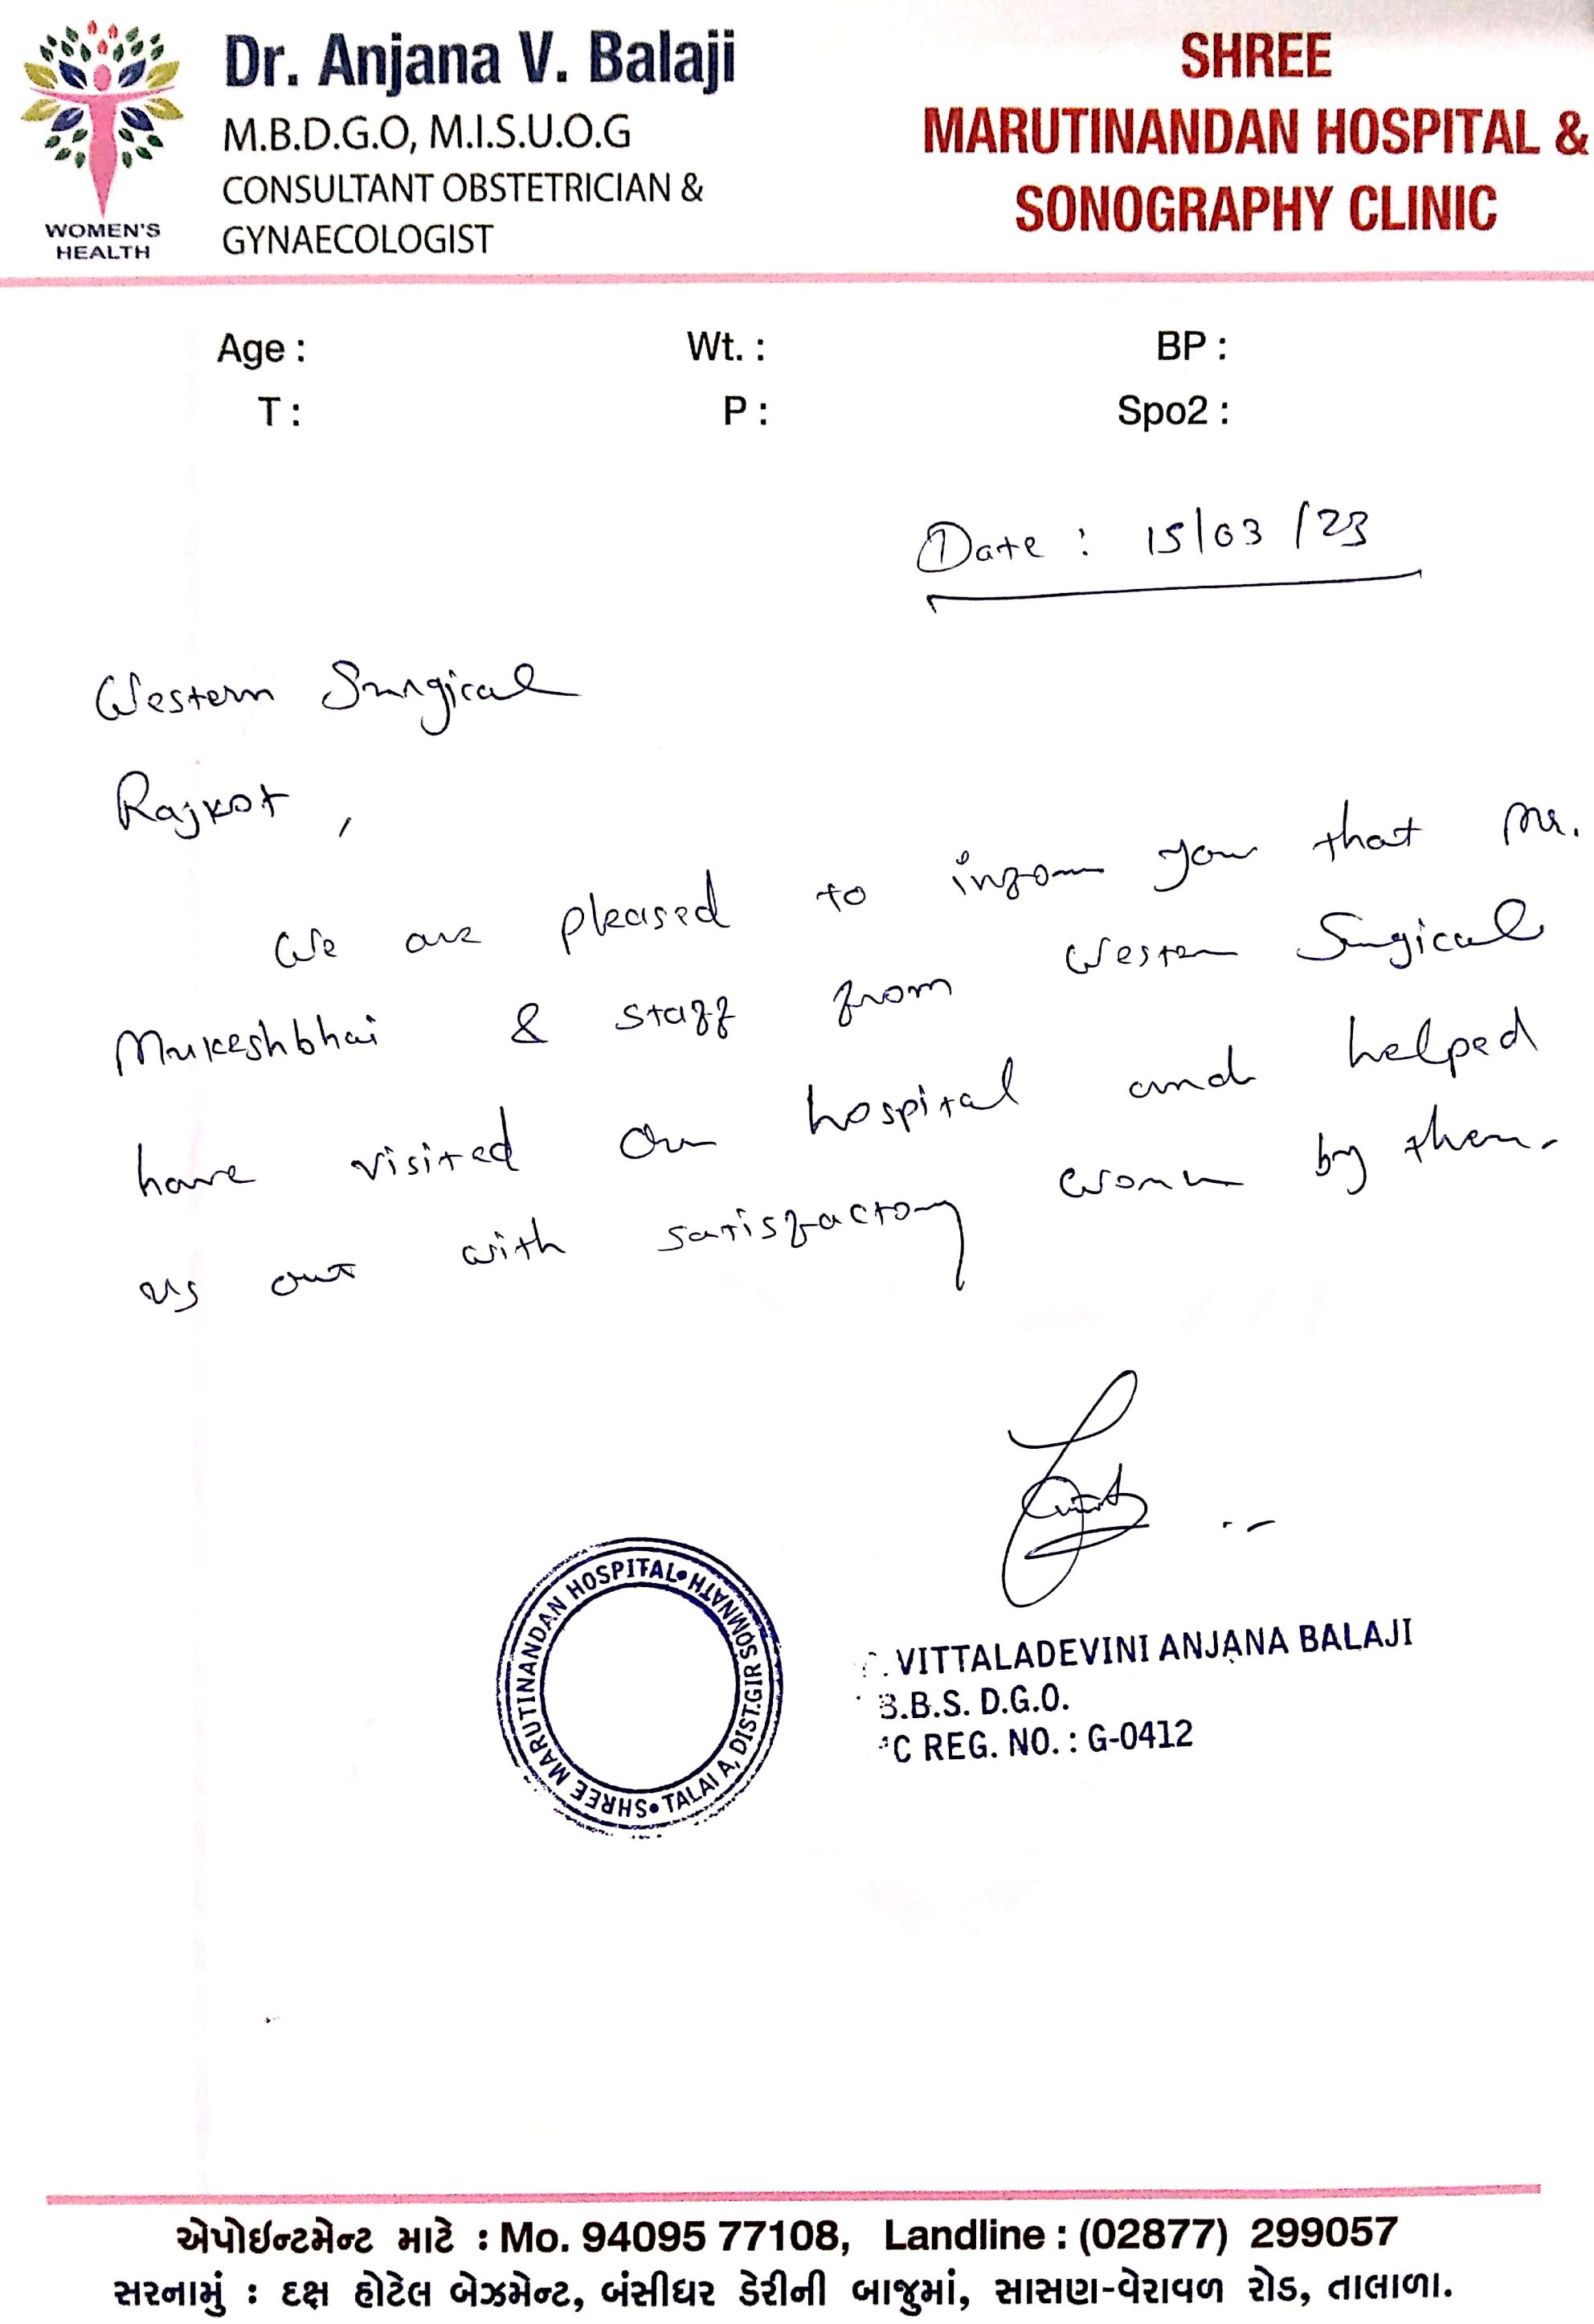 Dr. Anjana V. Balaji
M.B.D.G.O, M.I.S.U.O.G
CONSULTANT OBSTETRICIAN &
GYNAECOLOGIST
WOMEN'S
HEALTH
SHREE
MARUTINANDAN HOSPITAL &
SONOGRAPHY CLINIC
Age : Wt. : BP :
T : P : Spo2 :
Date : 15/03/23
Western Surgical
Rajkot,
We are pleased to inform you that Mr.
Mukeshbhai & staff from Western Surgical
have visited our hospital and helped
us out with satisfactory work by them.
SHREE MARUTINANDAN HOSPITAL • TALALA, DIST.GIR SOMNATH •
. VITTALADEVINI ANJANA BALAJI
B.B.S. D.G.O.
C REG. NO. : G-0412
એપોઇન્ટમેન્ટ માટે : Mo. 94095 77108, Landline : (02877) 299057
સરનામું : દક્ષ હોટેલ બેઝમેન્ટ, બંસીધર ડેરીની બાજુમાં, સાસણ-વેરાવળ રોડ, તાલાળા.